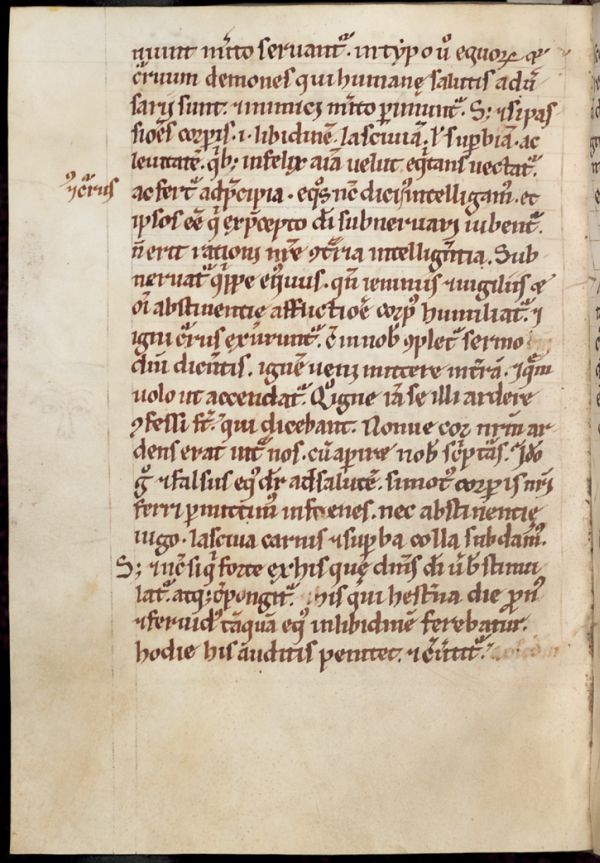 niunt m̄ito servantᷓ. in typo ū equoꝝ ⁊
cᷓruum demones qui humanę salutis aduͥ
sarii sunt. ⁊ inimici m̄ito pimuntᷓ. S; ⁊ si pas
siões corporis .i. libidinē. lasciviā. ł supbiā. ac
levitatē. qͥb; infelix aīa velut eqͥtans vectatᷓ.
⁊ cᷓrus
ac fertᷓ ad pͥcipia. eqͦs nc̄ dici intelligamꝰ. et
ipsos eē qͥ ex pͥcepto dī subnervari iubentᷓ.
ñ erit rationi nr̄e ꝯtͣria intelligentia. Sub
nervatᷓ qͥppe equus. qn̄ ieiuniis ⁊ vigiliis ⁊
oī abstinentie afflictioē corpꝰ humiliatᷓ. ⁊
igni cᷓrus exuruntᷓ. cū in nob̄ ꝯpletᷓ sermo
dn̄i dicentis. ignē veni mittere in tr̄ā. ⁊ qͣm
volo ut accendatᷓ. Qͦ igne iā se illi ardere
ꝯfessi st̄. qui dicebant. Nonne cor nrm̄ ar
dens erat int̄ nos. cū apiret nob̄ scͥptᷓas. Id̄o
gͦ ⁊ falsus eqͦs dr̄ ad salutē. si motꝰ corporis nr̄i
ferri pmittimꝰ infrenes. nec abstinentię
iugo. lasciva carnis ⁊ supba colla subdamꝰ.
S; ⁊ nc̄ siqͥ forte ex his quę dn̄s dī vͥb̄ stimu
latᷓ. atq; cͦpongitᷓ. his qui hestͥna die pnꝰ
⁊ fervidꝰ tāquā eqͦ in libidinē ferebatur.
hodie his auditis penitet. ⁊ cͦūtitᷓ.